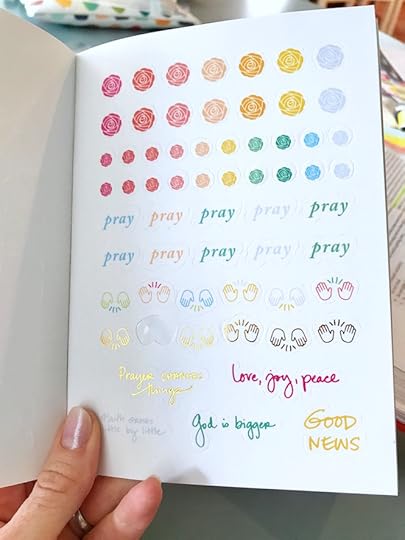 pray pray pray pray pray
pray pray pray pray pray
Prayer changes
things
love, joy, peace
faith comes
little by little
God is bigger
GOOD
NEWS